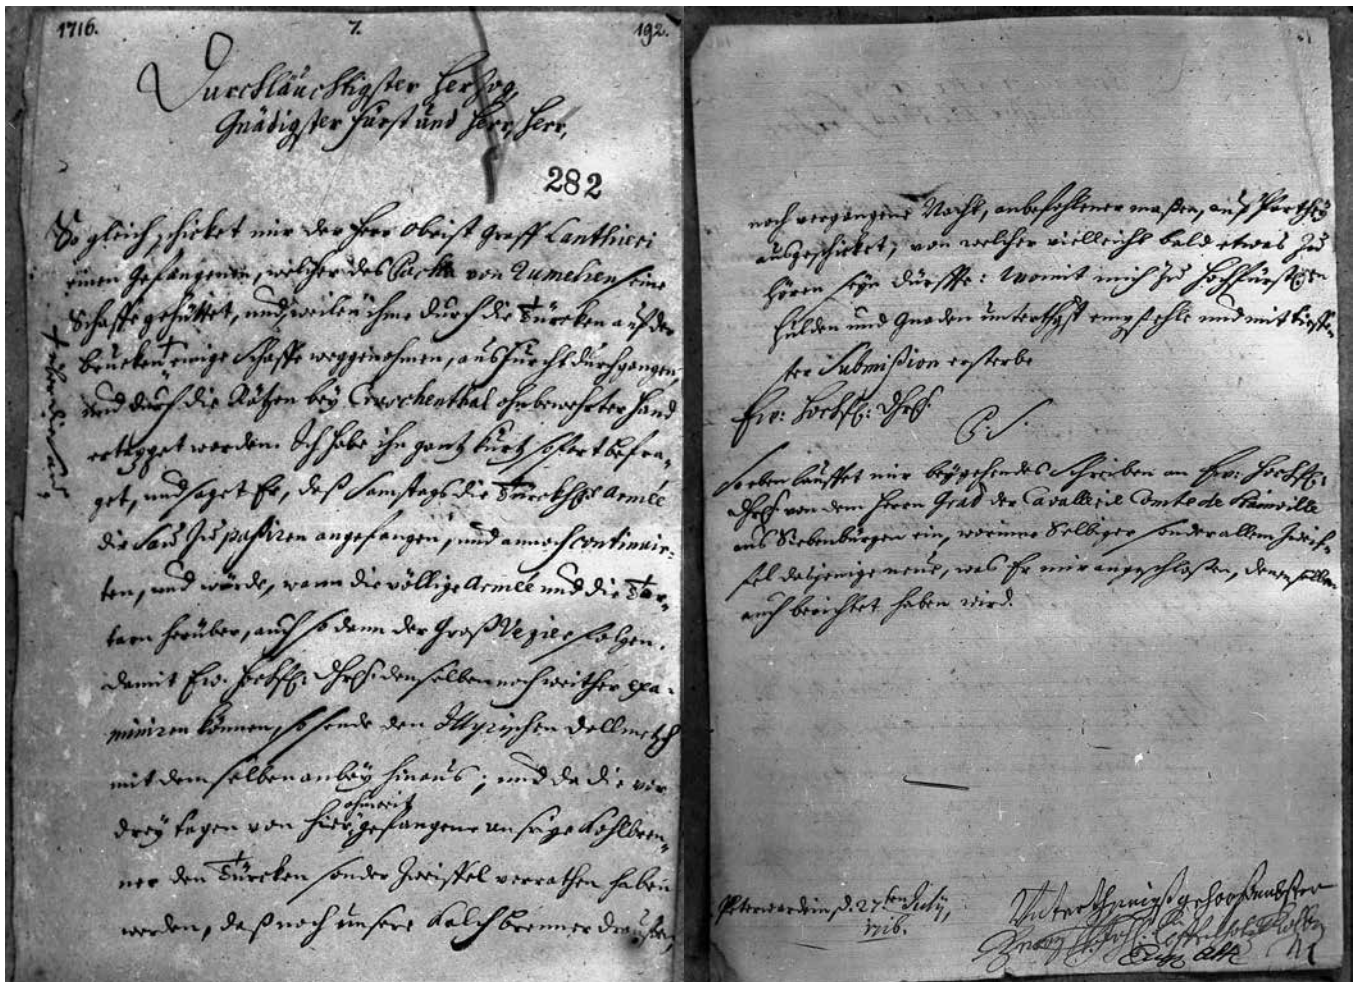 1716. 7. 192.
Durchläuchtigster Herzog,
Gnädigster Fürst und Herr, Herr,
282
So gleich schicket mir der Herr Obrist Graff Lanthieri
einen Gefangenen, welcher des Bacha von Rumelien seine
Schaffe gehüttet, und weilen ihme durch die Türcken auf der
brucken † einige Schaffe weggenohmen, aus Furcht durchgangen,
† über die Sau
und durch die Rätzen bey ohnbewehrter Hand
ertappet worden. Ich habe ihn gantz kurtz sofort befra-
get, und saget Er, daß Samstags die Türckhse Armée
die Sau zu passiren angefangen, und annoch continuir-
ten, und würde, wann die völlige Armée und die Tar-
tarn herüber, auch so dann der Groß Vezier folgen.
damit Ew. Hochf: Dhrl. denselben noch weither exa-
miniren können, so sende den Illyrischen Dollmetsch
mit demselben anbey hinaus; und da die vor
drey tagen von hier ohnweit gefangene unsrige Kohlbren-
ner den Türcken sonder Zweiffel verrathen haben
werden, daß noch unsere Kalchbrenner draußen,
noch vergangene Nacht, anbefohlener maßen, auf Parthey
ausgeschicket, von welcher vielleicht bald etwas zu
hören seyn dürffte: Womit mich zu Hochfürstl:en
Hulden und Gnaden unterthgst empfehle und mit tieffes-
ter Submißion ersterbe
Ew: Hochf: Dhrl.
P.S.
Soeben lauffet mir beygehendes Schreiben an Ew: Hochf:
Dhrl. von dem Herrn Gral der Cavallerie Comte de Stainville
aus Siebenbürgen ein, worinne Selbiger sonder allem Zweif-
fel dasjenige neue, was Er mir angeschloßen, denenselben
auch berichtet haben wird.
Peterwardein, d. 27ten July,
1716.
Unterthänigst gehorsambster